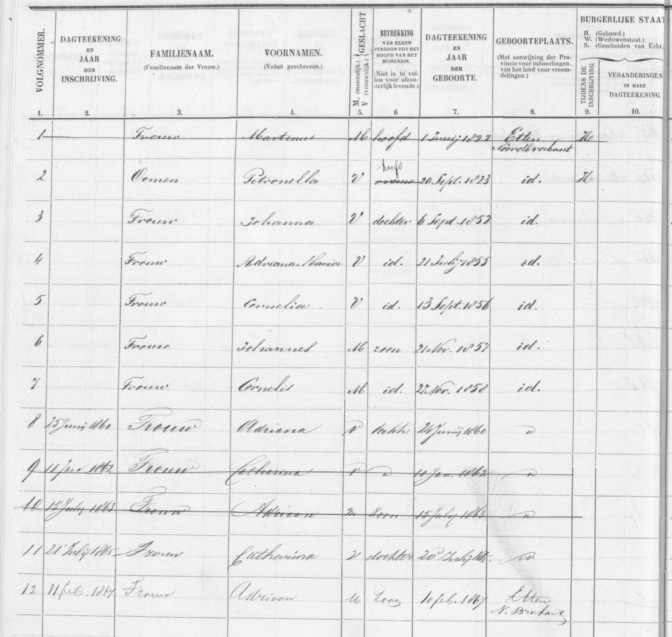 VOLGNOMMER. DAGTEEKENING EN JAAR DER INSCHRIJVING. FAMILIENAAM. (Familienaam der Vrouw.) VOORNAMEN. (Voluit geschreven.) GESLACHT M. (mannelijk.) V (vrouwelijk.) BETREKKING VAN ELKEN PERSOON TOT HET HOOFD VAN HET HUISGEZIN. (Niet in te vullen voor afzonderlijk levende.) DAGTEEKENING EN JAAR DER GEBOORTE. GEBOORTEPLAATS. (Met aanwijzing der Provincie voor inboorlingen, van het land voor vreemdelingen.) BURGERLIJKE STAAT
H. (Gehuwd.)
W. (Weduwenstaat.)
S. (Gescheiden van Echt.
TIJDENS DE INSCHRIJVING. VERANDERINGEN IN HARE DAGTEEKENING.
1. 2. 3. 4. 5. 6. 7. 8. 9. 10.
1 Trouw Martinus M hoofd 1 Junij 1822 Etten H
Noordbrabant
2 Oomen Petronella V 20 Sept. 1823 id. H
3 Trouw Johanna V dochter 6 Sept. id.
4 Trouw Adriana Maria V id. 21 Julij 1855 id.
5 Trouw Cornelia V id. 13 Sept. 1856 id.
6 Trouw Johannes M zoon 21 Nov. 1857 id.
7 Trouw Cornelis M id. 27 Nov. 1858 id.
8 25 Junij 1860 Trouw Adriana V 24 Junij 1860 "
9 11 Jan 1862 Trouw Catharina V " 10 Jan. 1862 "
10 15 July 1863 Trouw Adriaan M Zoon 15 July 1863 "
11 21 July 1865 Trouw Catharina V dochter 20 July 1865 "
12 11 feb. 1867 Trouw Adriaan M Zoon 10 feb. 1867 Etten
N. Brabant